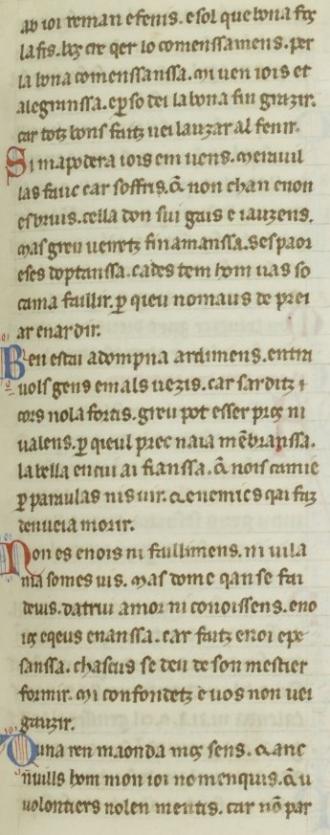 ab ioi reman e fenis. e sol que bona fos
la fis. boz cre qer lo comenssamens. per
la bona comenssanssa. mi uen iois et
alegranssa. e ꝑ so dei la bona fin grazir.
car totz bons faitz uei lauzar al fenir.
Si mapodera iois em uens. merauil
las faue car soffris. q̃ non chan e non
esbruis. cella don sui gais e iauzens.
mas greu ueiretz fin amanssa. ses paor
e ses doptanssa. cades tem hom uas so
cama faillir. ꝑ qieu no maus de prei
ar enardir.
Ben estai a dompna ardimens. entrr
uols gens e mals uezis. car sarditz
cors nola fortis. greu pot esser pros ni
ualens. ꝑ qieul prec naia mẽbranssa.
la bella en cui ai fianssa. q̃ nois camie
ꝑ paraulas nis uir. q̃ enemics qai faz
denueia morir.
Non es enois ni faillimens. ni uila
nia so mes uis. mas dome qan se fai
deuis. dautrui amor ni conoissens. eno
ios e qeus enanssa. car faitz enoi e pe
sanssa. chascus se deu de son mestier
formir. mi confondetz e uos non uei
gauzir.
Duna ren maonda mos sens. q̃ anc
nuills hom mon ioi no menquis. q̃ u
uolontiers nol en mentis. car nõ par